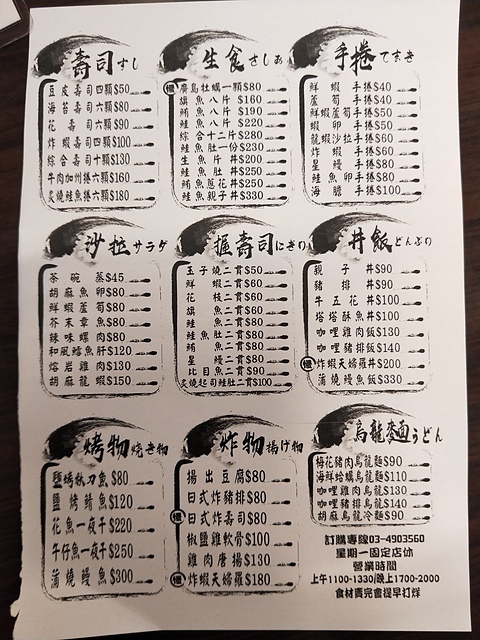 壽司すし
豆皮壽司四顆$50
海苔壽司六顆$80
花壽司六顆$90
炸蝦壽司四顆$100
綜合壽司十顆$130
牛肉加州捲六顆$160
炙燒鮭魚捲六顆$180
生食さしみ
慢 廣島牡蠣一顆$80
旗魚八片$160
鮪魚八片$190
鮭魚八片$220
綜合十二片$280
鮭魚肚一份$230
生魚片丼$200
鮭魚肚丼$250
鮪魚蔥花丼$250
鮭魚親子丼$330
手捲てまき
鮮蝦手捲$40
蘆筍手捲$40
鮮蝦蘆筍手捲$50
蝦卵手捲$50
龍蝦沙拉手捲$60
炸蝦手捲$60
星鰻手捲$80
鮭魚卵手捲$80
海膽手捲$100
沙拉サラダ
茶碗蒸$45
胡麻魚卵$80
鮮蝦蘆筍$80
芥末章魚$80
辣味螺肉$80
和風鱈魚肝$120
熔岩雞肉$130
胡麻龍蝦$150
握壽司にきり
玉子燒二貫$50
鮮蝦二貫$60
花枝二貫$60
旗魚二貫$60
鮭魚二貫$80
鮭魚肚二貫$80
鮪魚二貫$80
星鰻二貫$80
比目魚二貫$90
炙燒起司鮭肚二貫$100
丼飯どんぶり
親子丼$90
豬排丼$90
牛五花丼$100
塔塔酥魚丼$100
咖哩雞肉飯$130
咖哩豬排飯$140
慢 炸蝦天婦羅丼$200
蒲燒鰻魚飯$330
烤物焼き物
鹽烤秋刀魚$80
鹽烤鯖魚$120
花魚一夜干$220
午仔魚一夜干$250
蒲燒鰻魚$300
炸物揚げ物
揚出豆腐$80
日式炸豬排$80
慢 日式炸壽司$80
椒鹽雞軟骨$100
雞肉唐揚$130
慢 炸蝦天婦羅$180
烏龍麵うどん
梅花豬肉烏龍麵$90
海鮮蛤蠣烏龍麵$110
咖哩雞肉烏龍$130
咖哩豬排烏龍$140
胡麻烏龍冷麵$90
訂購專線03-4903560
星期一固定店休
營業時間
上午1100-1330/晚上1700-2000
食材賣完會提早打烊